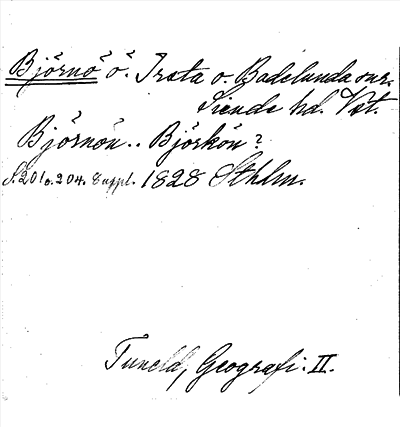 Björnö ö. Irsta o. Badelunda snr.
Siende hd. Vst.
Björnön.. Björkön?
S. 201 o. 204. Suppl. 1828 Sthlm.
Tuneld, Geografi. II.